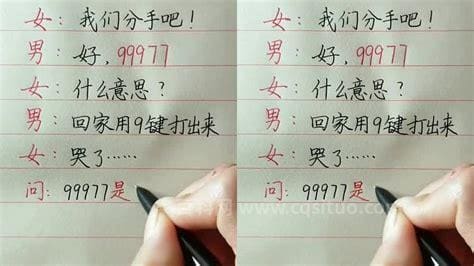 女：我们分手吧！
男：好，99977
女：什么意思？
男：回家用9键打出来
女：哭了……
问：99977是
女：我们分手吧！
男：好，99977
女：什么意思？
男：回家用9键打出来
女：哭了……
问：99977是
www.cqsituo.com